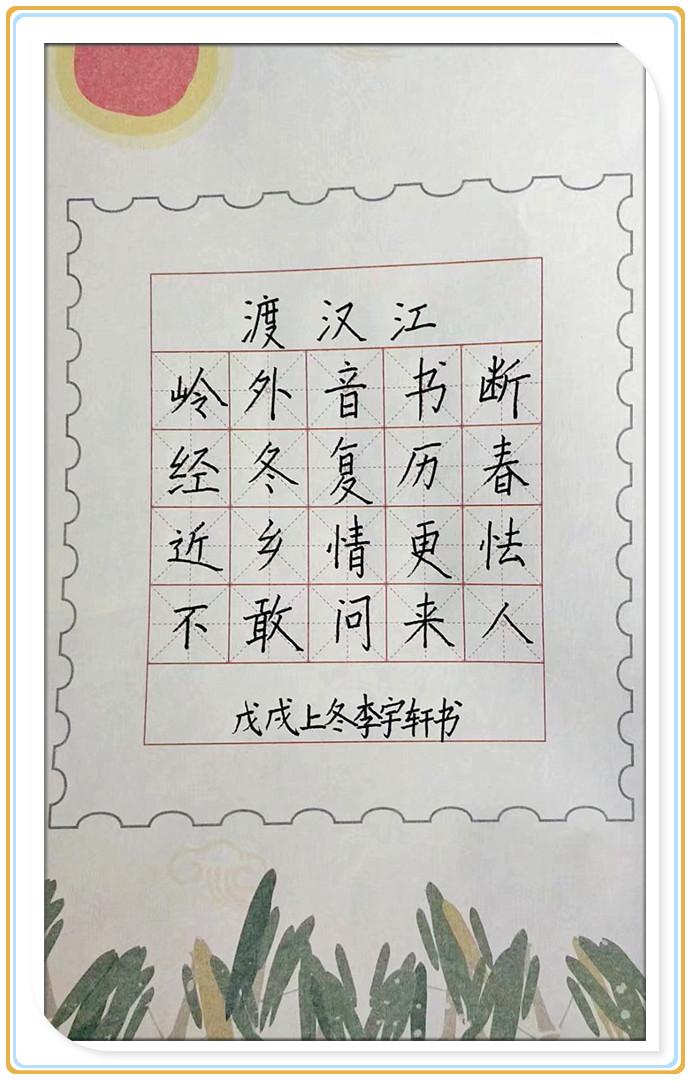 渡汉江
岭外音书断
经冬复历春
近乡情更怯
不敢问来人
戊戌上冬李宇轩书